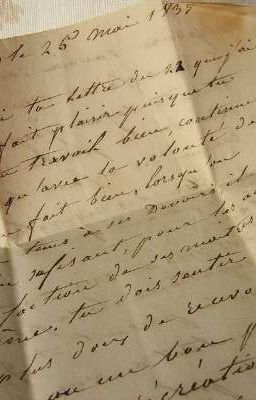 le 25 Mai 1837
ta lettre du 22 que j'ai
fait plaisir puisque tu
travaille bien, continue
qu'avec la volonté de
fait bien, lorsqu'on
tems à ses Devoirs il
suffisant, pour la
faction de ses maîtres
même, tu dois sentir
plus doux de recevo
ou un bon p
récréatio